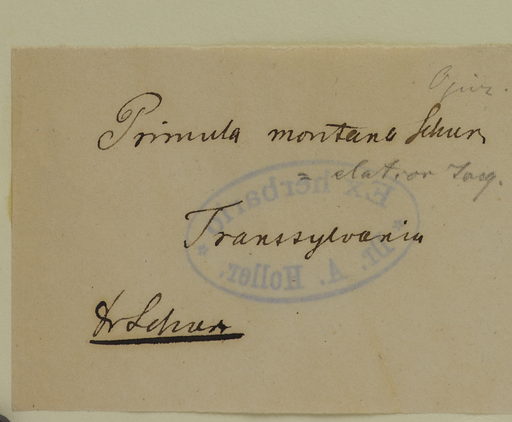 Primula montana Schur
= elatior Jacq.
Transsylvania
Ex herbario
Dr. A. Holler.
Dr Schur